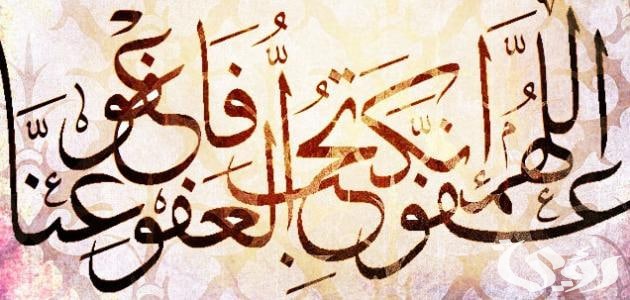 اللَّهُمَّ إنَّكَ عَفُوٌّ تُحِبُّ العَفْوَ فَاعْفُ عَنَّا
رؤى